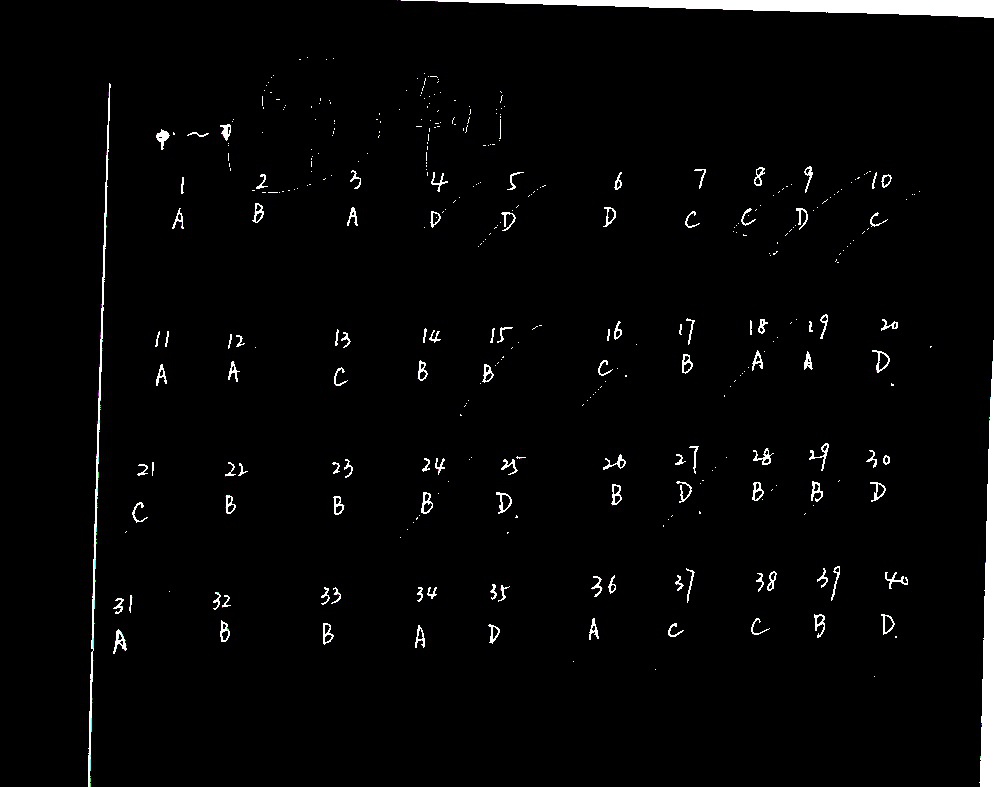 1 2 3 4 5 6 7 8 9 10
A B A D D D C C D C
11 12 13 14 15 16 17 18 19 20
A A C B B C B A A D
21 22 23 24 25 26 27 28 29 30
C B B B D B D B B D
31 32 33 34 35 36 37 38 39 40
A B B A D A C C B D